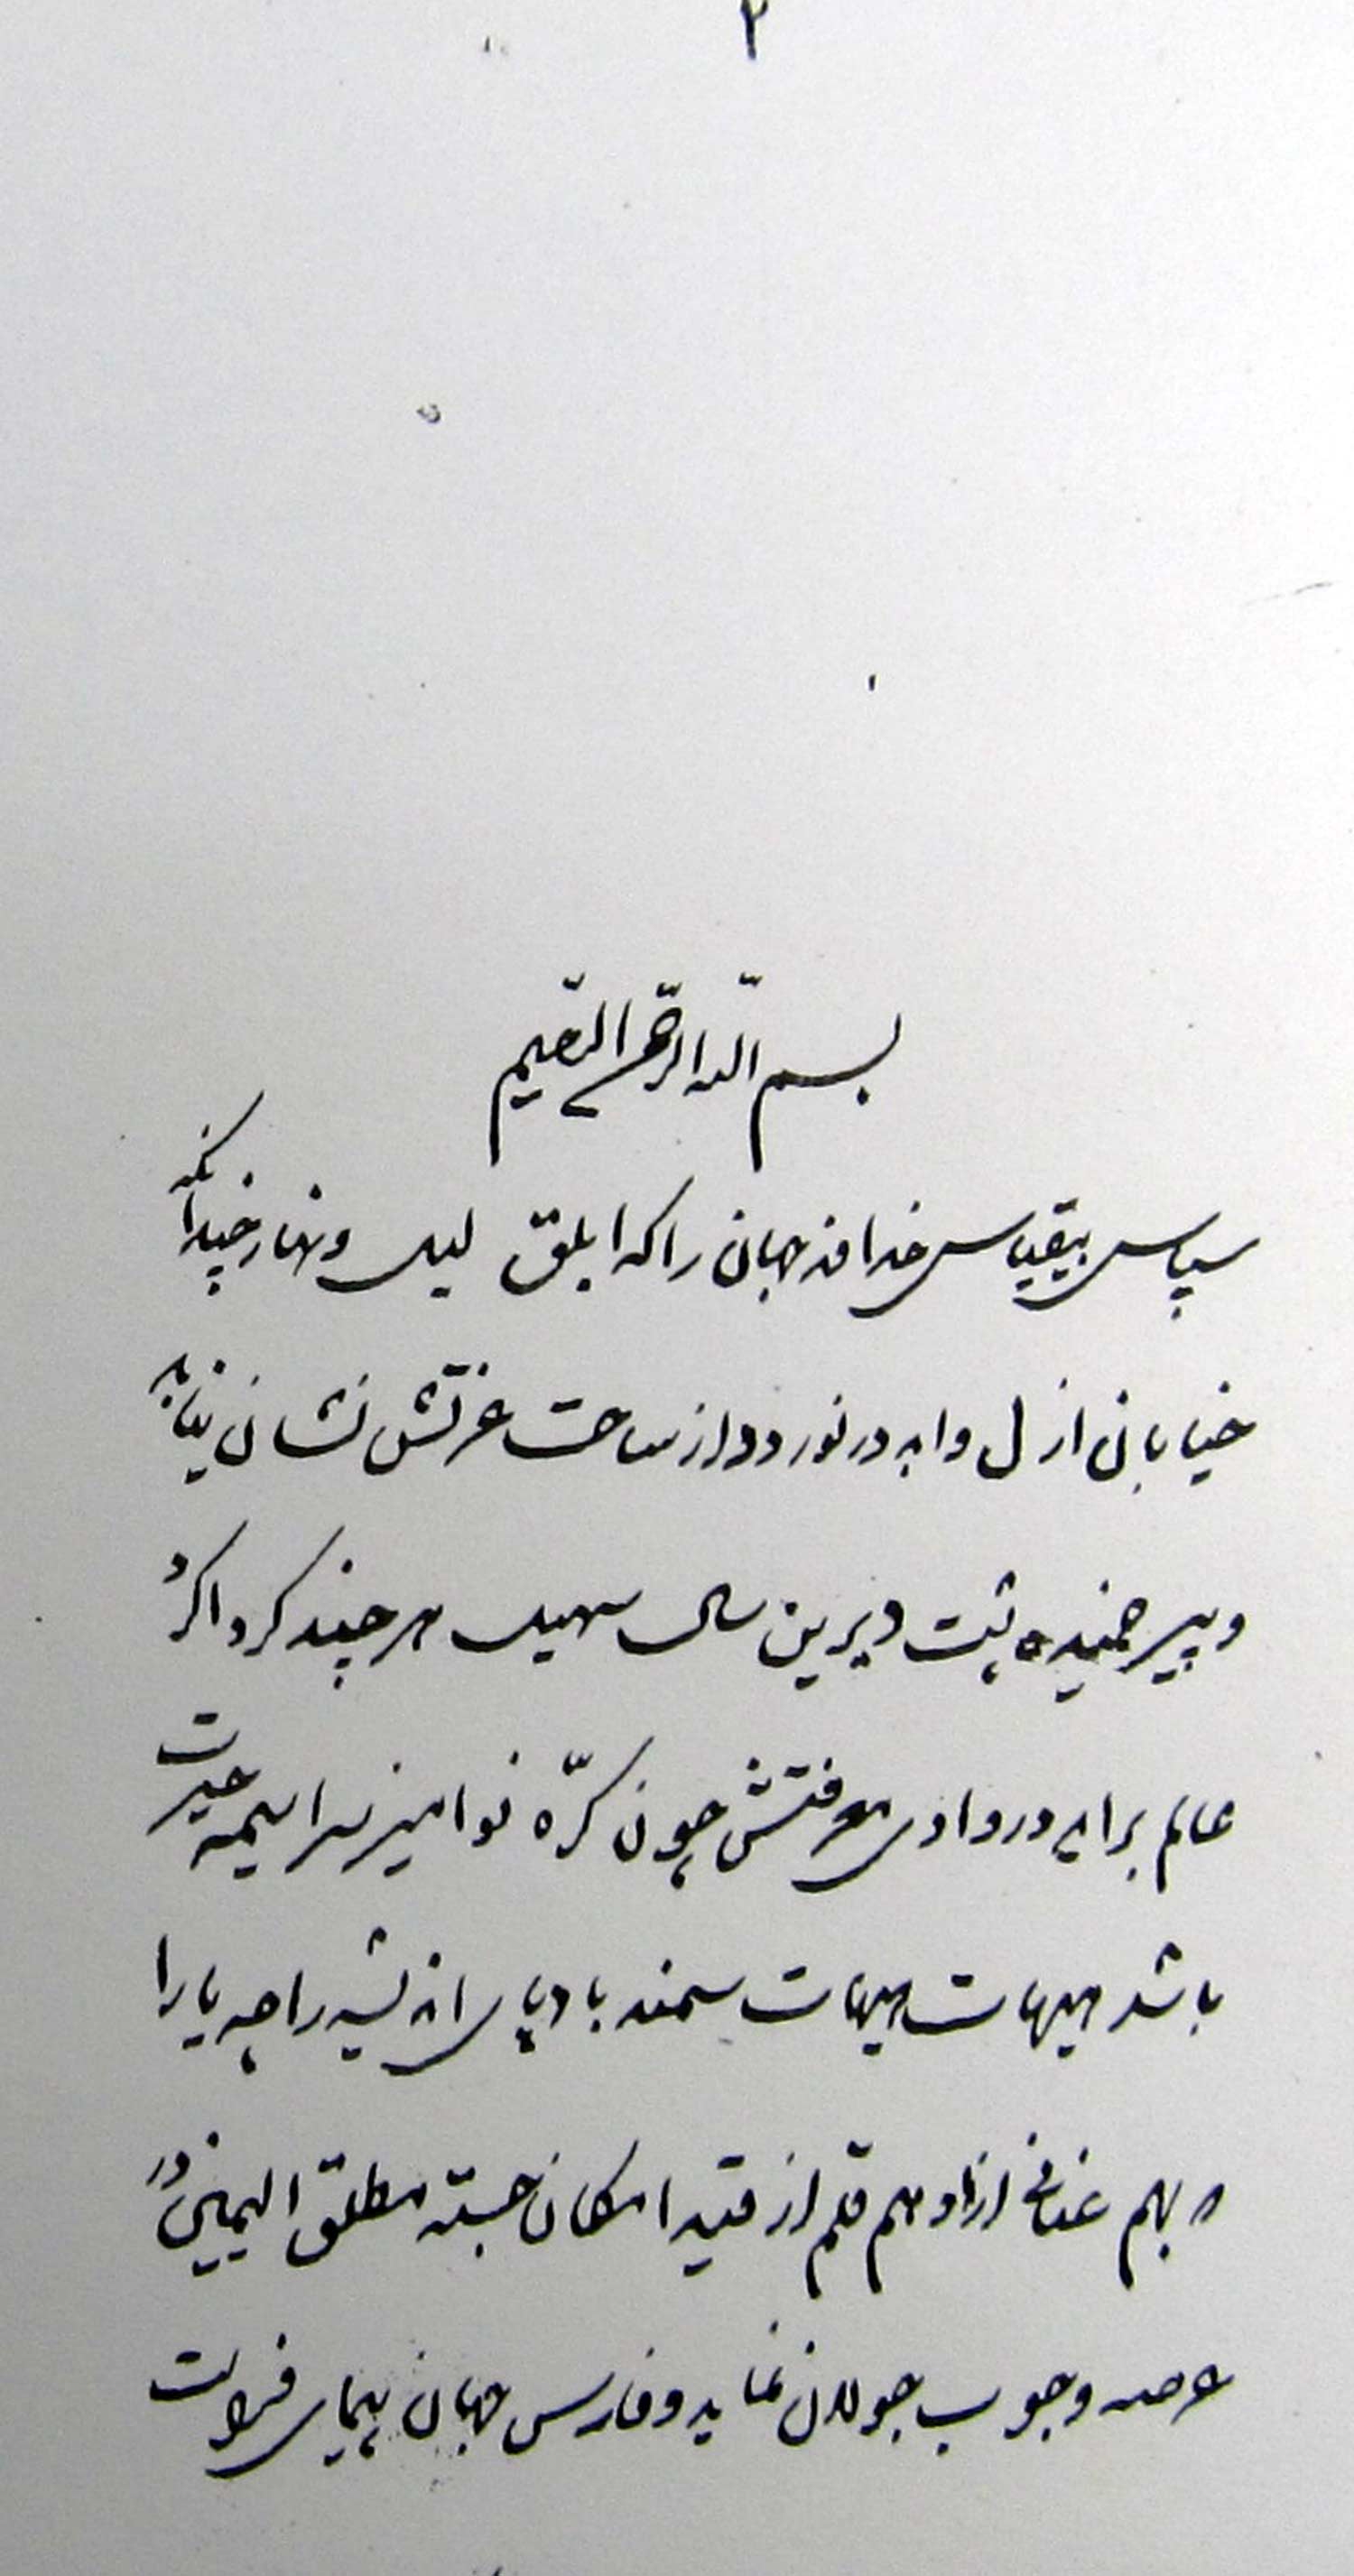 ۲
بسم الله الرحمن الرحیم
سپاس بیقیاس خداوند جهان را که ابلق لیل و نهار چندانکه
خیابان ازل و ابد در نوردد از ساحت عزتش نشان نیابد
و پیر خمیده پشت دیرین سال سهیل هر چند کرد اکرد
عالم براید در وادی معرفتش چون کرّه نوامیز سراسیمه حیرت
باشد هیهات هیهات سمند بادپای اندیشه را چه یارا
که بهم عنانی ادهم قلم از قید امکان جسته مطلق الیمین در
عرصه وجوب جولان نماید و فارس جهان پیمای فراست